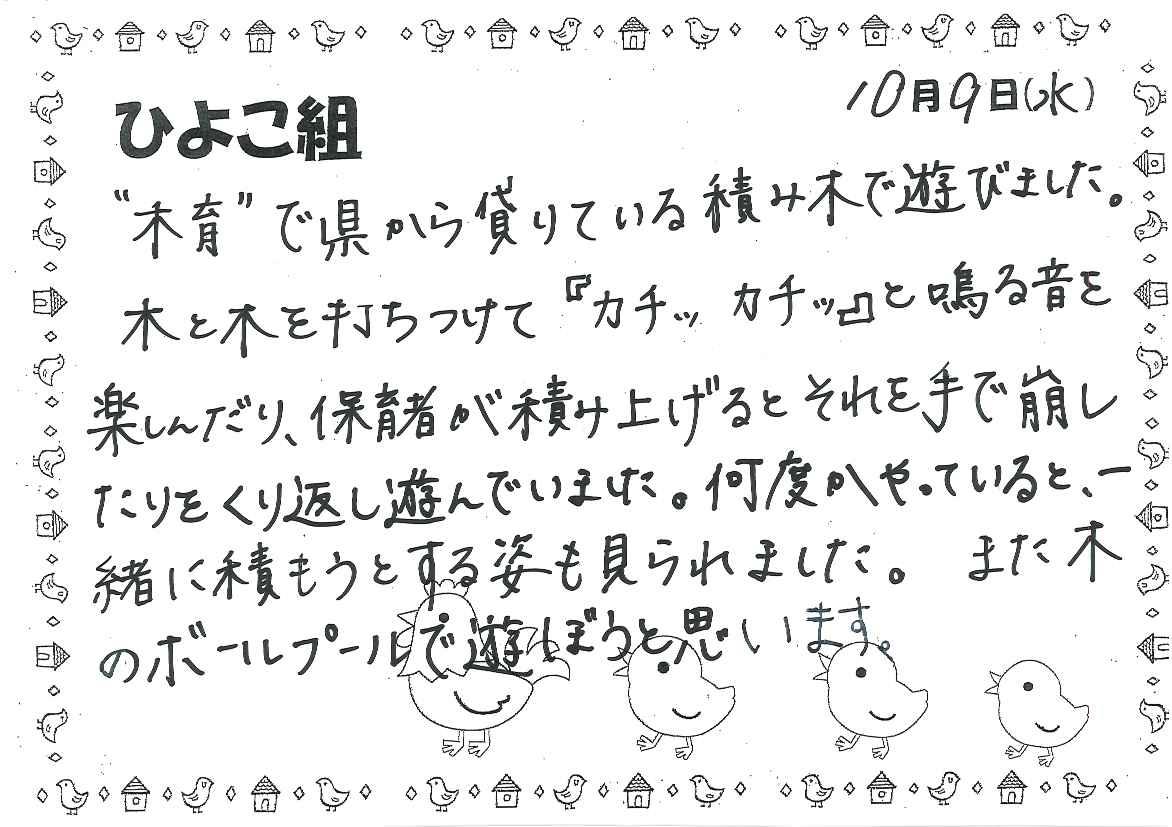 10月9日(水)
ひよこ組
“木育”で県から貸りている積み木で遊びました。
木と木を打ちつけて『カチッ カチッ』と鳴る音を
楽しんだり、保育者が積み上げるとそれを手で崩し
たりをくり返し遊んでいました。何度かやっていると、一
緒に積もうとする姿も見られました。 また木
のボールプールで遊ぼうと思います。